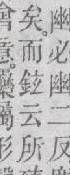 幽必幽二反
矣。而鉉云所
會意屬形